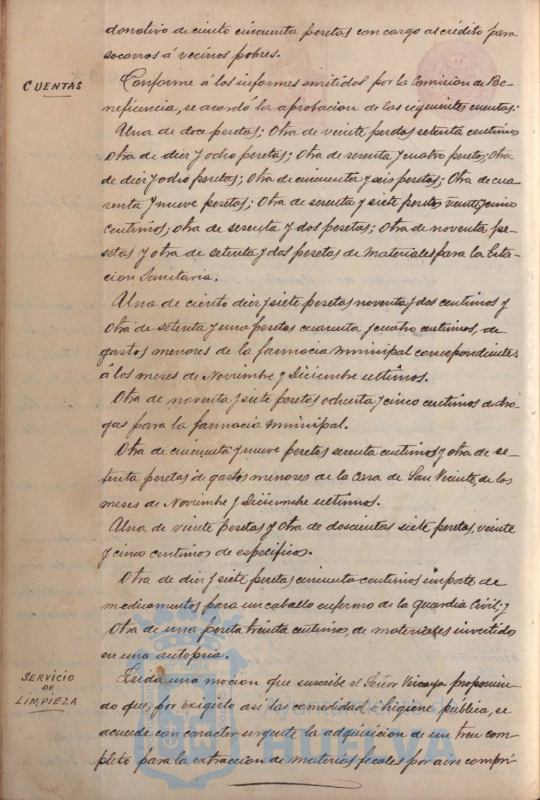 donativo de ciento cincuenta pesetas con cargo al crédito para
socorros á vecinos pobres.
CUENTAS
Conforme á los informes emitidos por la Comision de Be-
neficencia, se acordó la aprobacion de las siguientes cuentas:
Una de doce pesetas; Otra de veinte pesetas setenta centimos
Otra de diez y ocho pesetas; Otra de sesenta y cuatro pesetas; Otra
de diez y ocho pesetas; Otra de cincuenta y seis pesetas; Otra de cua-
renta y nueve pesetas; Otra de sesenta y siete pesetas veinticinco
centimos; otra de sesenta y dos pesetas; Otra de noventa pe-
setas y otra de setenta y dos pesetas de materiales para la Esta-
cion Sanitaria.
Una de ciento diez y siete pesetas noventa y dos centimos y
Otra de setenta y una pesetas cuarenta y cuatro centimos, de
gastos menores de la farmacia municipal correspondientes
á los meses de Noviembre y Diciembre ultimos.
Otra de noventa y siete pesetas ochenta y cinco centimos de dro-
gas para la farmacia municipal.
Otra de cincuenta y nueve pesetas sesenta centimos y otra de se-
tenta pesetas de gastos menores de la Casa de San Vicente, de los
meses de Noviembre y Diciembre ultimos.
Una de veinte pesetas y Otra de doscientas siete pesetas, veinte
y cinco centimos de especificos.
Otra de diez y siete pesetas cincuenta centimos importe de
medicamentos para un caballo enfermo de la guardia Civil; y
Otra de una peseta treinta centimos, de materiales invertidos
en una autopsia.
SERVICIO
DE
LIMPIEZA
Leida una mocion que suscribe el Señor Vizcaya proponien-
do que, por exigirlo asi las comodidad é higiene pública, se
acuerde con caracter urgente la adquisicion de un tren com-
pleto para la extraccion de materias fecales por aire compri-
HUELVA